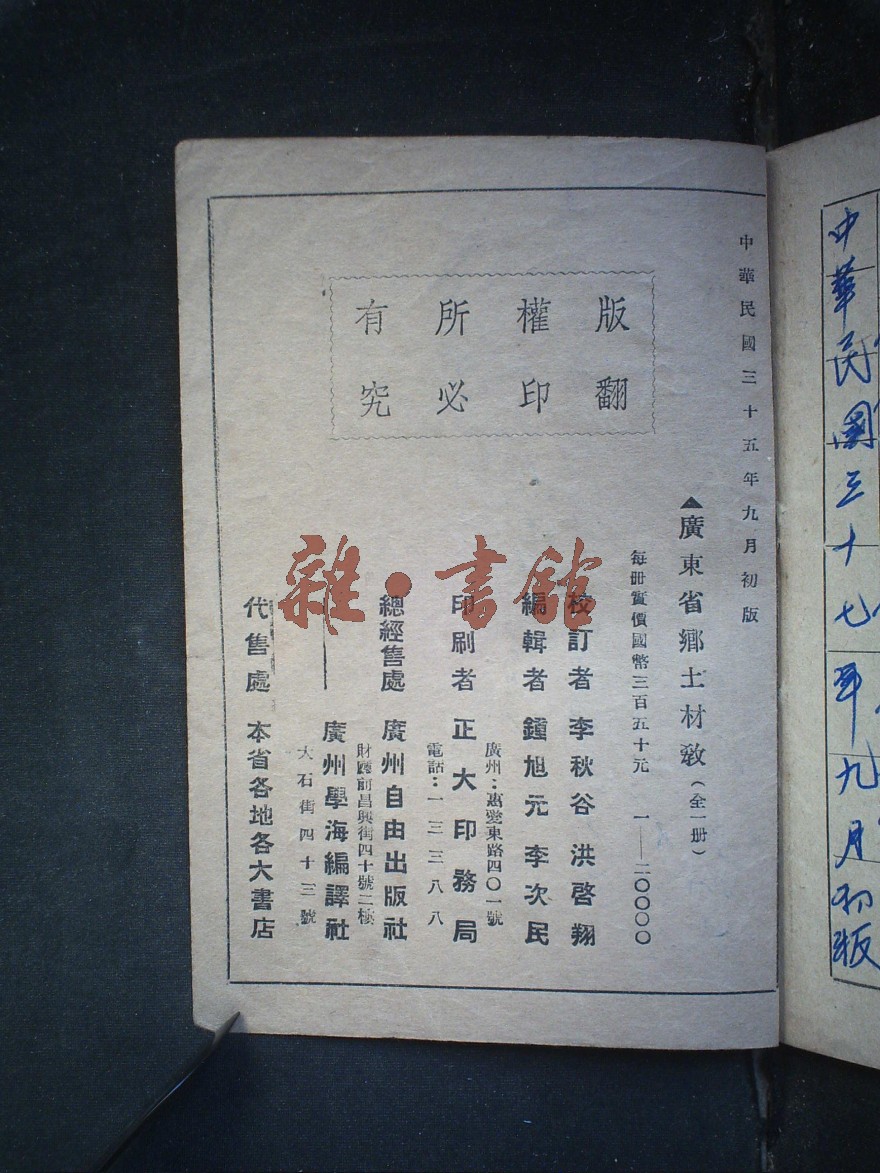 中華民國三十七年九月初版
中華民國三十五年九月初版
版權所有
翻印必究
▲廣東省鄉土材教(全一册)
每册實價國幣三百五十元 一——二〇〇〇〇
校訂者 李秋谷 洪啓翔
編輯者 鍾旭元 李次民
廣州：惠愛東路四〇一號
印刷者 正大印務局
電話：一三三八八
總經售處 廣州自由出版社
財廳前昌興街四十號二樓
廣州學海編譯社
大石街四十三號
代售處 本省各地各大書店
雜·書館